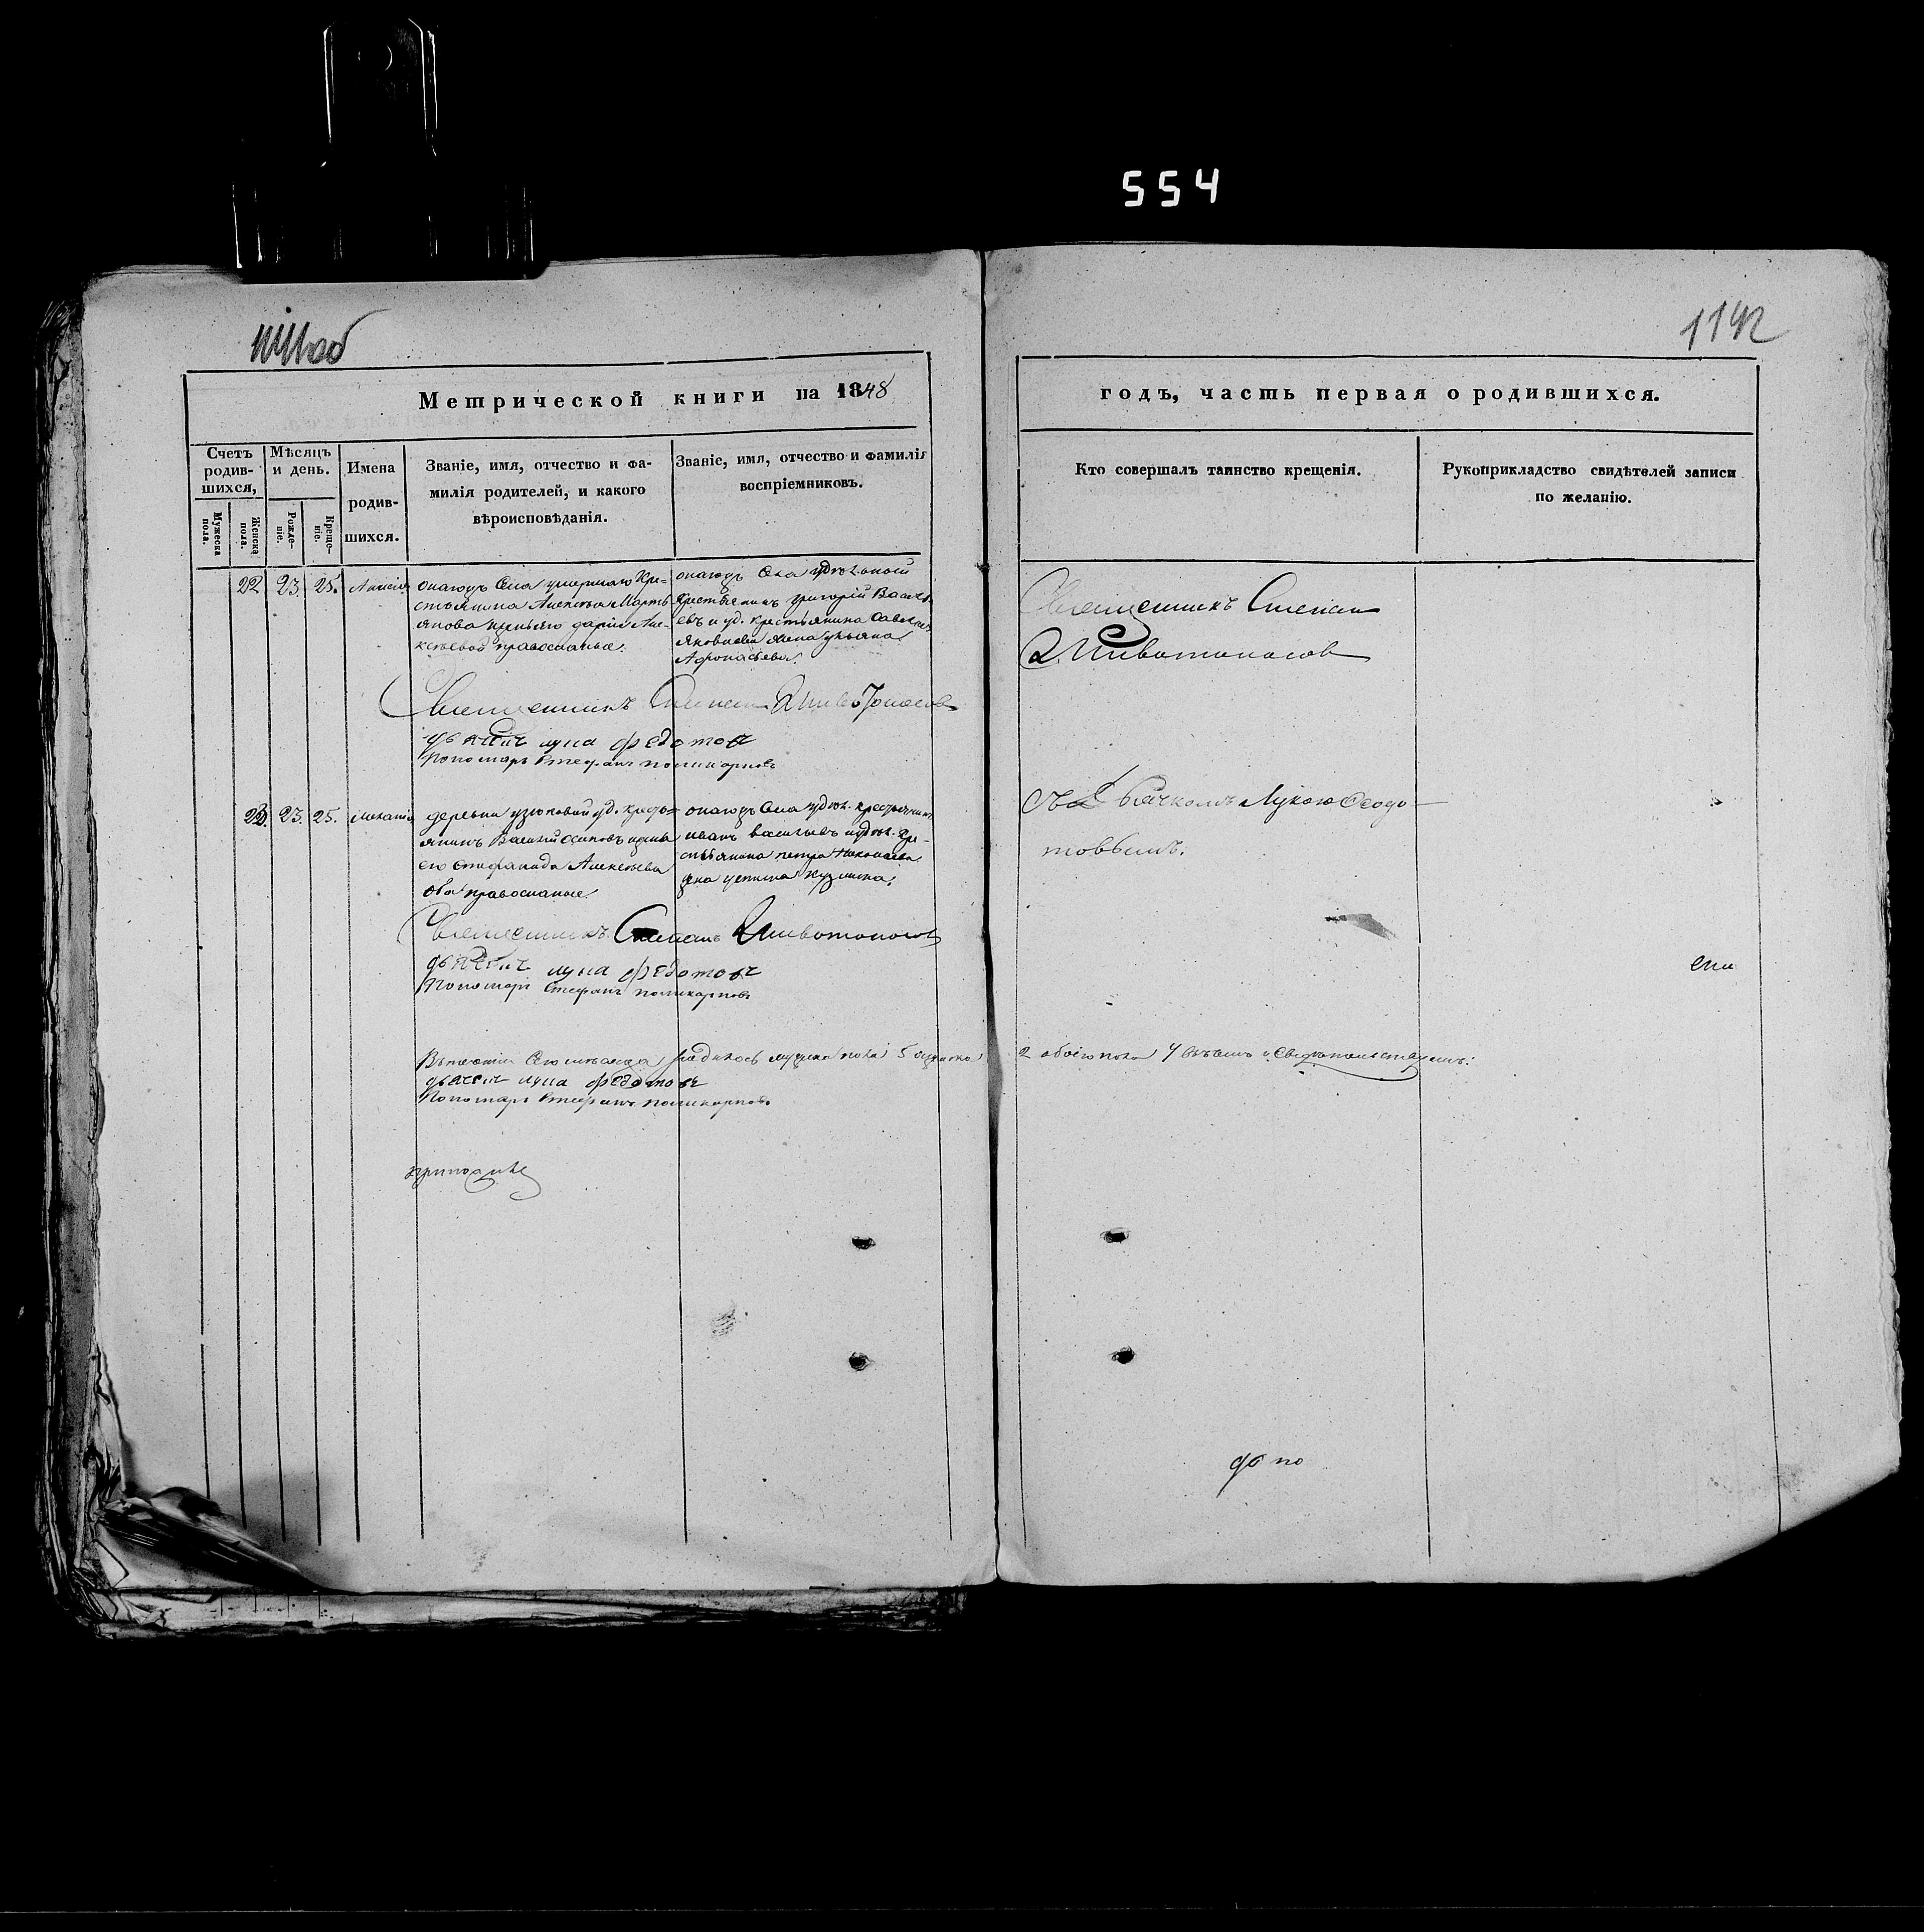 554
1142
Метрической книги на 1848
годъ, часть первая о родившихся.
Счетъ родив-
шихся,
Мужеска пола.
Женска пола.
Мѣсяцъ
и день.
Рожде-
ніе.
Креще-
ніе.
Имена
родив-
шихся.
Званіе, имя, отчество и фа-
милія родителей, и какого
вѣроисповѣданія.
Званіе, имя, отчество и фамилія
воспріемниковъ.
Кто совершалъ таинство крещенія.
Рукоприкладство свидѣтелей записи
по желанію.
22 23. 25. Анисія
онагожъ села умершаго Кре-
стьянина Алексѣя Март-
Але-
ксѣева православные.
онагожъ села удѣльной
Крестьянинъ григорій Василь-
евъ и уд. крестьянина Савелія
Яковлева жена ульяна
Афонасьева.
Священникъ Степан
Животоносов
Священникъ Степан Животоносов
дьячекъ лука федотов
Пономарь Стефанъ поликарповъ
23. 23. 25. Меланія
деревни уд. кресть-
янинъ Василій Осиповъ и жена
его степанида Алексѣева
оба православные.
онагожъ села удѣл. крестьянинъ
иванъ васильевъ и удѣл. Кре-
стьянина петра Николаева
жена устинья Кузмина.
Съ дьячкомъ Лукою Ѳедо-
товымъ.
Священникъ Степанъ Животоносов
дьячекъ лука федотов
Пономарь Стефанъ поликарповъ
ели
родилось мужеска пола 5 женска
2 обоего пола 7 въ чемъ и свидѣтельствуемъ:
дьячекъ лука федотов
Пономарь Стефанъ поликарповъ
до по